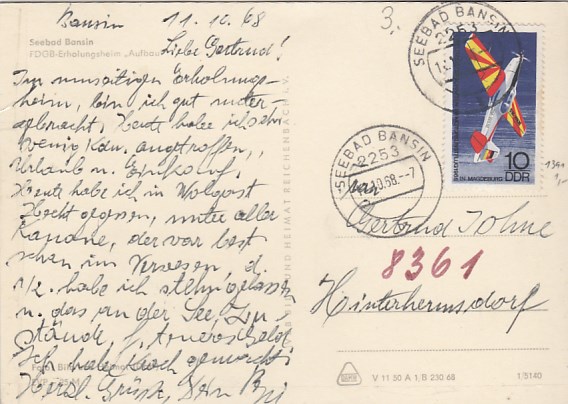 Bansin 11.10.68
3,-
Seebad Bansin
FDGB-Erholungsheim „Aufbau
Liebe Gertrud!
Im umseitigen Erholungs-
heim, bin ich gut unter-
gebracht, Heute habe ich sehr
wenig angetroffen,
Urlaub u. Einkauf,
Heute habe ich in Wolgast
Hecht gegessen, unter aller
Kanone, der war best
schon im Verwesen, d.
1/2 habe ich stehngelassen
u. das an der See, Zu-
stände, f. teures Geld
Ich habe Krach gemacht
Herzl. Grüße, Dein
Foto:
BILD UND HEIMAT REICHENBACH I. V.
SEEBAD BANSIN
2253
SEEBAD BANSIN
2253
10.68.--7
IN MAGDEBURG
10
DDR
1341
1,-
Gertrud Johne
8361
Hinterhermsdorf
V 11 50 A 1/B 230 68
1/5140